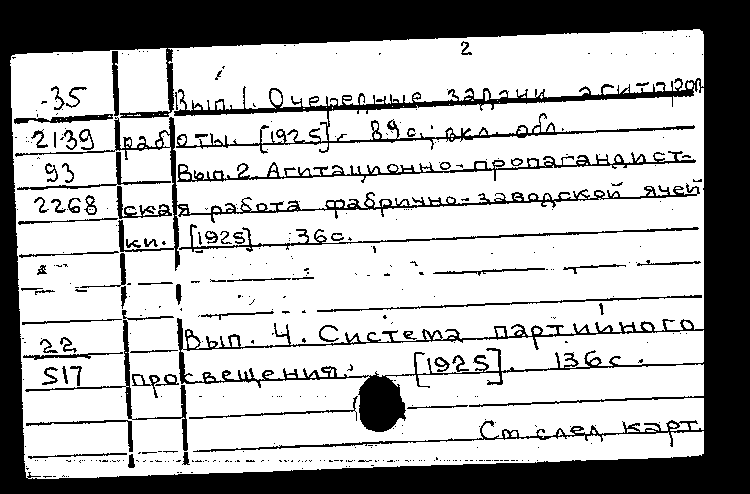 2
35 Вып. 1. Очередные задачи агитпроп
2139 работы. [1925]. 89 с., вкл. обл.
93 Вып. 2. Агитационно-пропагандист-
2268 ская работа фабрично-заводской ячей
ки. [1925]. 36 с.
22 Вып. 4. Система партийного
517 просвещения. [1925]. 136 с.
См. след карт.